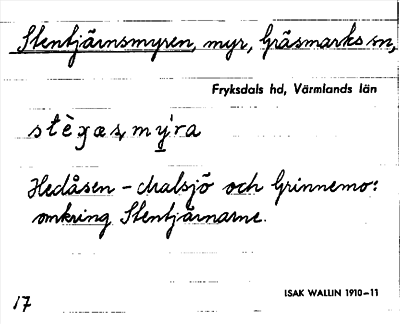 Stentjärnsmyren, myr, Gräsmarks sn,
Fryksdals hd, Värmlands län
Hedåsen - dralsjö och Grinnemo:
omkring Stentjärnarne.
17
ISAK WALLIN 1910-11